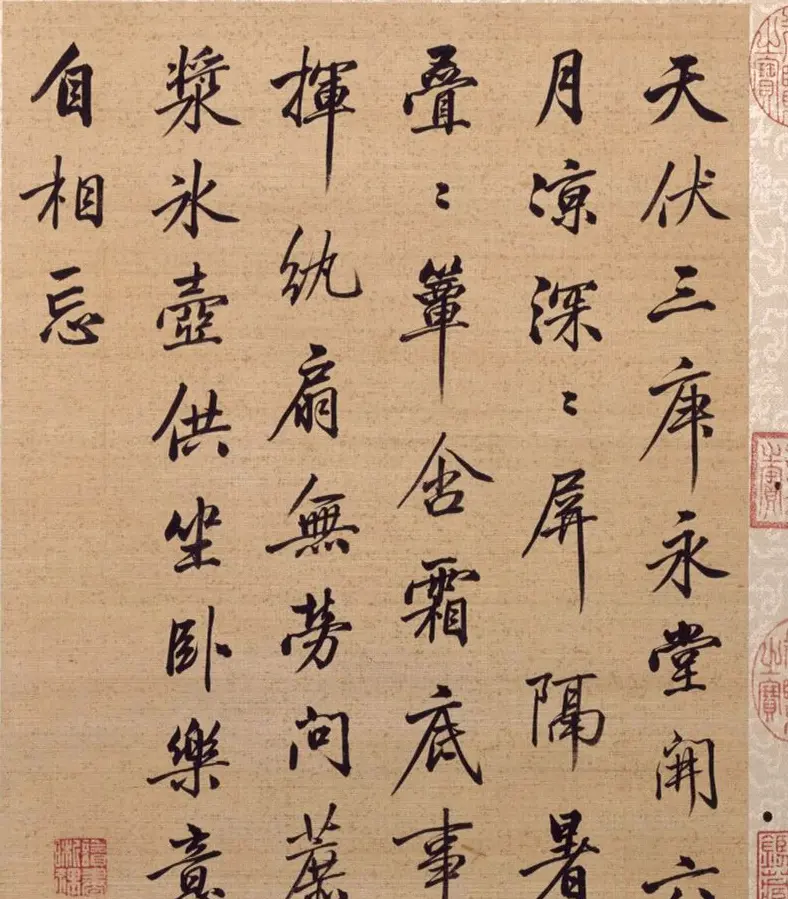 天伏三庚永堂開六
月涼深〻屏隔暑
疊〻簟含霜底事
揮紈扇無勞問蔗
漿冰壺供坐臥樂意
自相忘